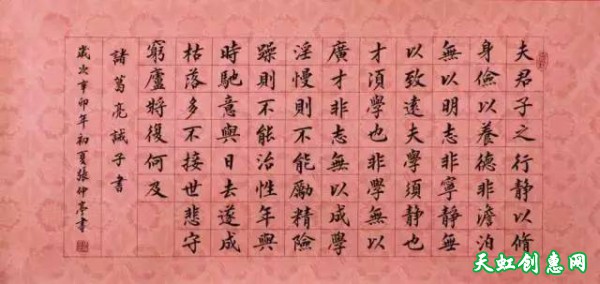 夫君子之行静以脩
身儉以養德非澹泊
無以明志非寧静無
以致遠夫學須静也
才須學也非學無以
廣才非志無以成學
淫慢則不能勵精險
躁則不能治性年與
時馳意與日去遂成
枯落多不接世悲守
窮廬將復何及
諸葛亮誡子書
歲次辛卯年初夏張仲亭書
天虹创惠网